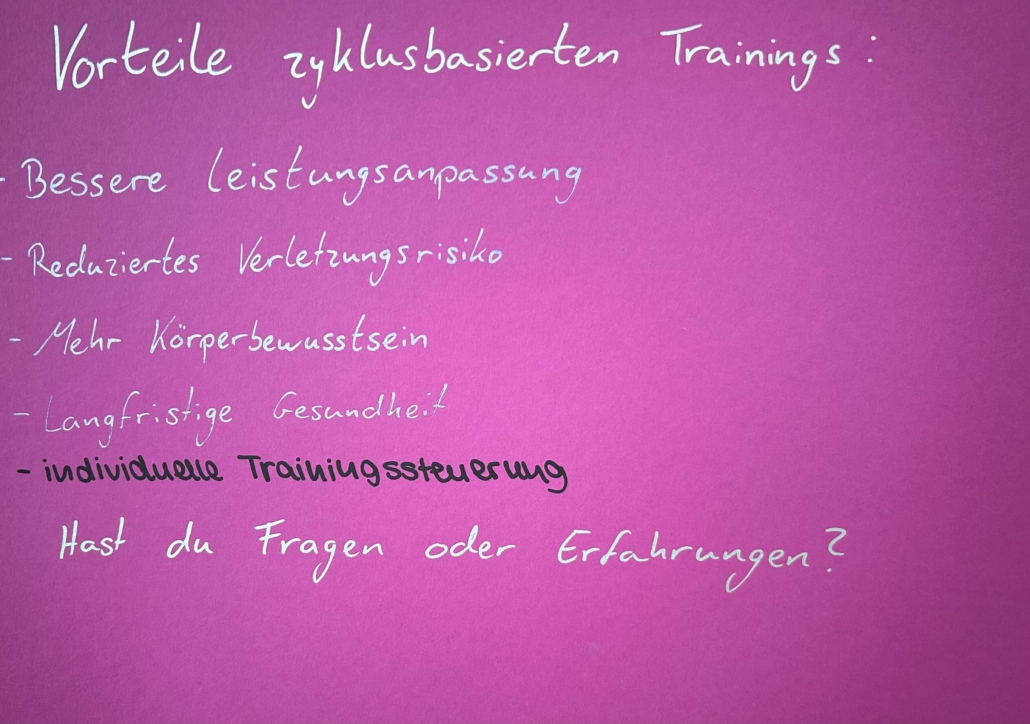 Vorteile zyklusbasierten Trainings:
- Bessere Leistungsanpassung
- Reduziertes Verletzungsrisiko
- Mehr Körperbewusstsein
- Langfristige Gesundheit
- individuelle Trainingssteuerung
Hast du Fragen oder Erfahrungen?